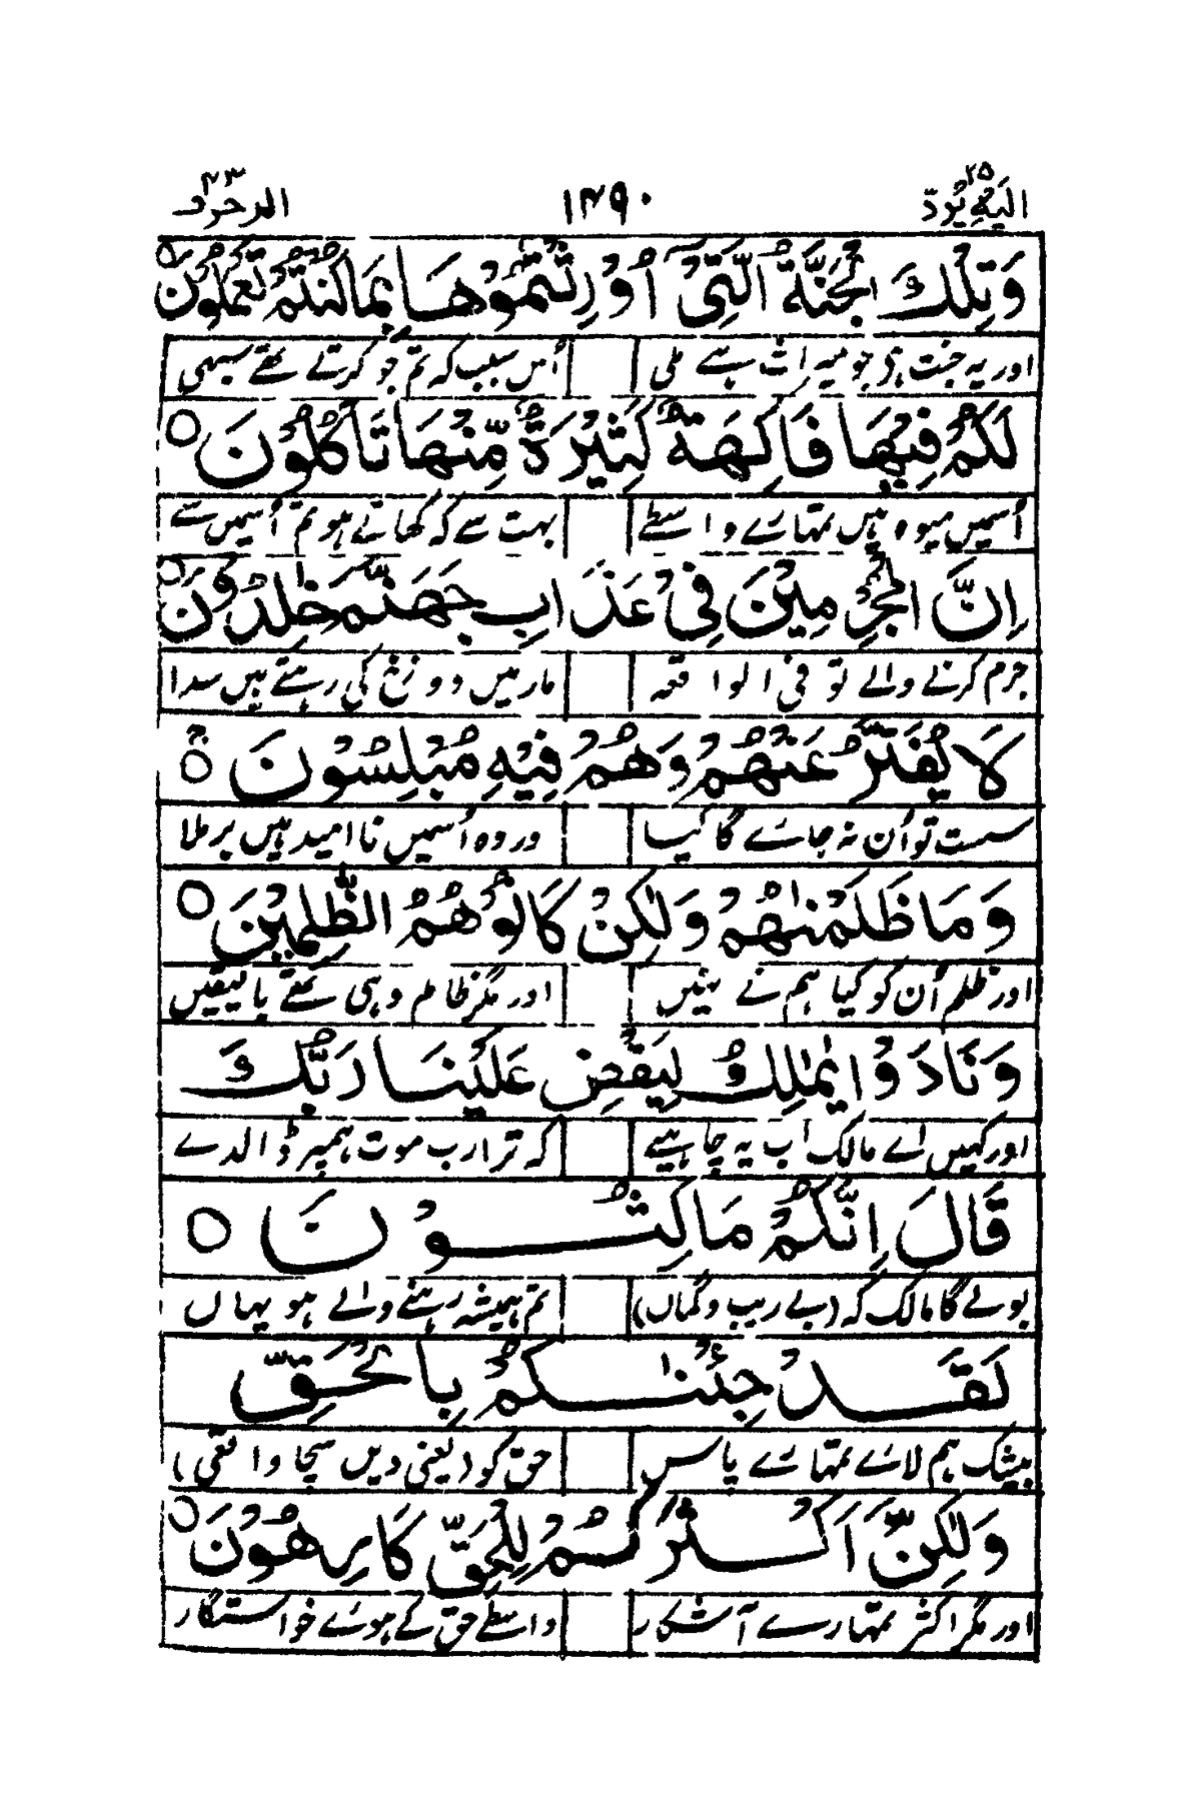 الیہ یردّ ۲۵ ۱۴۹۰ الزخرف ۴۳
وَتِلْكَ الْجَنَّةُ الَّتِیْۤ اُوْرِثْتُمُوْهَا بِمَا كُنْتُمْ تَعْمَلُوْنَ
اور یہ جنت ہی جو میراث ہے ملی اُس سبب کہ تم جو کرتے تھے سبھی
لَكُمْ فِیْهَا فَاكِهَةٌ كَثِیْرَةٌ مِّنْهَا تَاْكُلُوْنَ
اُسمیں میوہ ہیں تمہارے واسطے بہت سے کہ کھاتے ہو تم اُسمیں سے
اِنَّ الْمُجْرِمِیْنَ فِیْ عَذَابِ جَهَنَّمَ خٰلِدُوْنَ
جرم کرنے والے تو فی الواقعہ مار میں دوزخ کی رہتے ہیں سدا
لَا یُفَتَّرُ عَنْهُمْ وَهُمْ فِیْهِ مُبْلِسُوْنَ
سست تو اُن نہ جائے گا کیا ور وہ اُسمیں نا امید ہیں برملا
وَمَا ظَلَمْنٰهُمْ وَلٰكِنْ كَانُوْا هُمُ الظّٰلِمِیْنَ
اور ظلم اُن کو کیا ہم نے نہیں اور مگر ظالم وہی تھے بالیقیں
وَنَادَوْا یٰمٰلِكُ لِیَقْضِ عَلَیْنَا رَبُّكَ
اور کہیں اے مالک اب یہ چاہیے کہ ترا رب موت ہمپر ڈالدے
قَالَ اِنَّكُمْ مَاكِثُوْنَ
بولے گا مالک کہ (بے ریب و گماں) تم ہمیشہ رہنے والے ہو یہاں
لَقَدْ جِئْنٰكُمْ بِالْحَقِّ
بیشک ہم لائے تمہارے پاس حق کو (یعنی دیں سچا واقعی)
وَلٰكِنَّ اَكْثَرَكُمْ لِلْحَقِّ كَارِهُوْنَ
اور مگر اکثر تمہارے آشکار واسطے حق کے ہوئے خواستگار